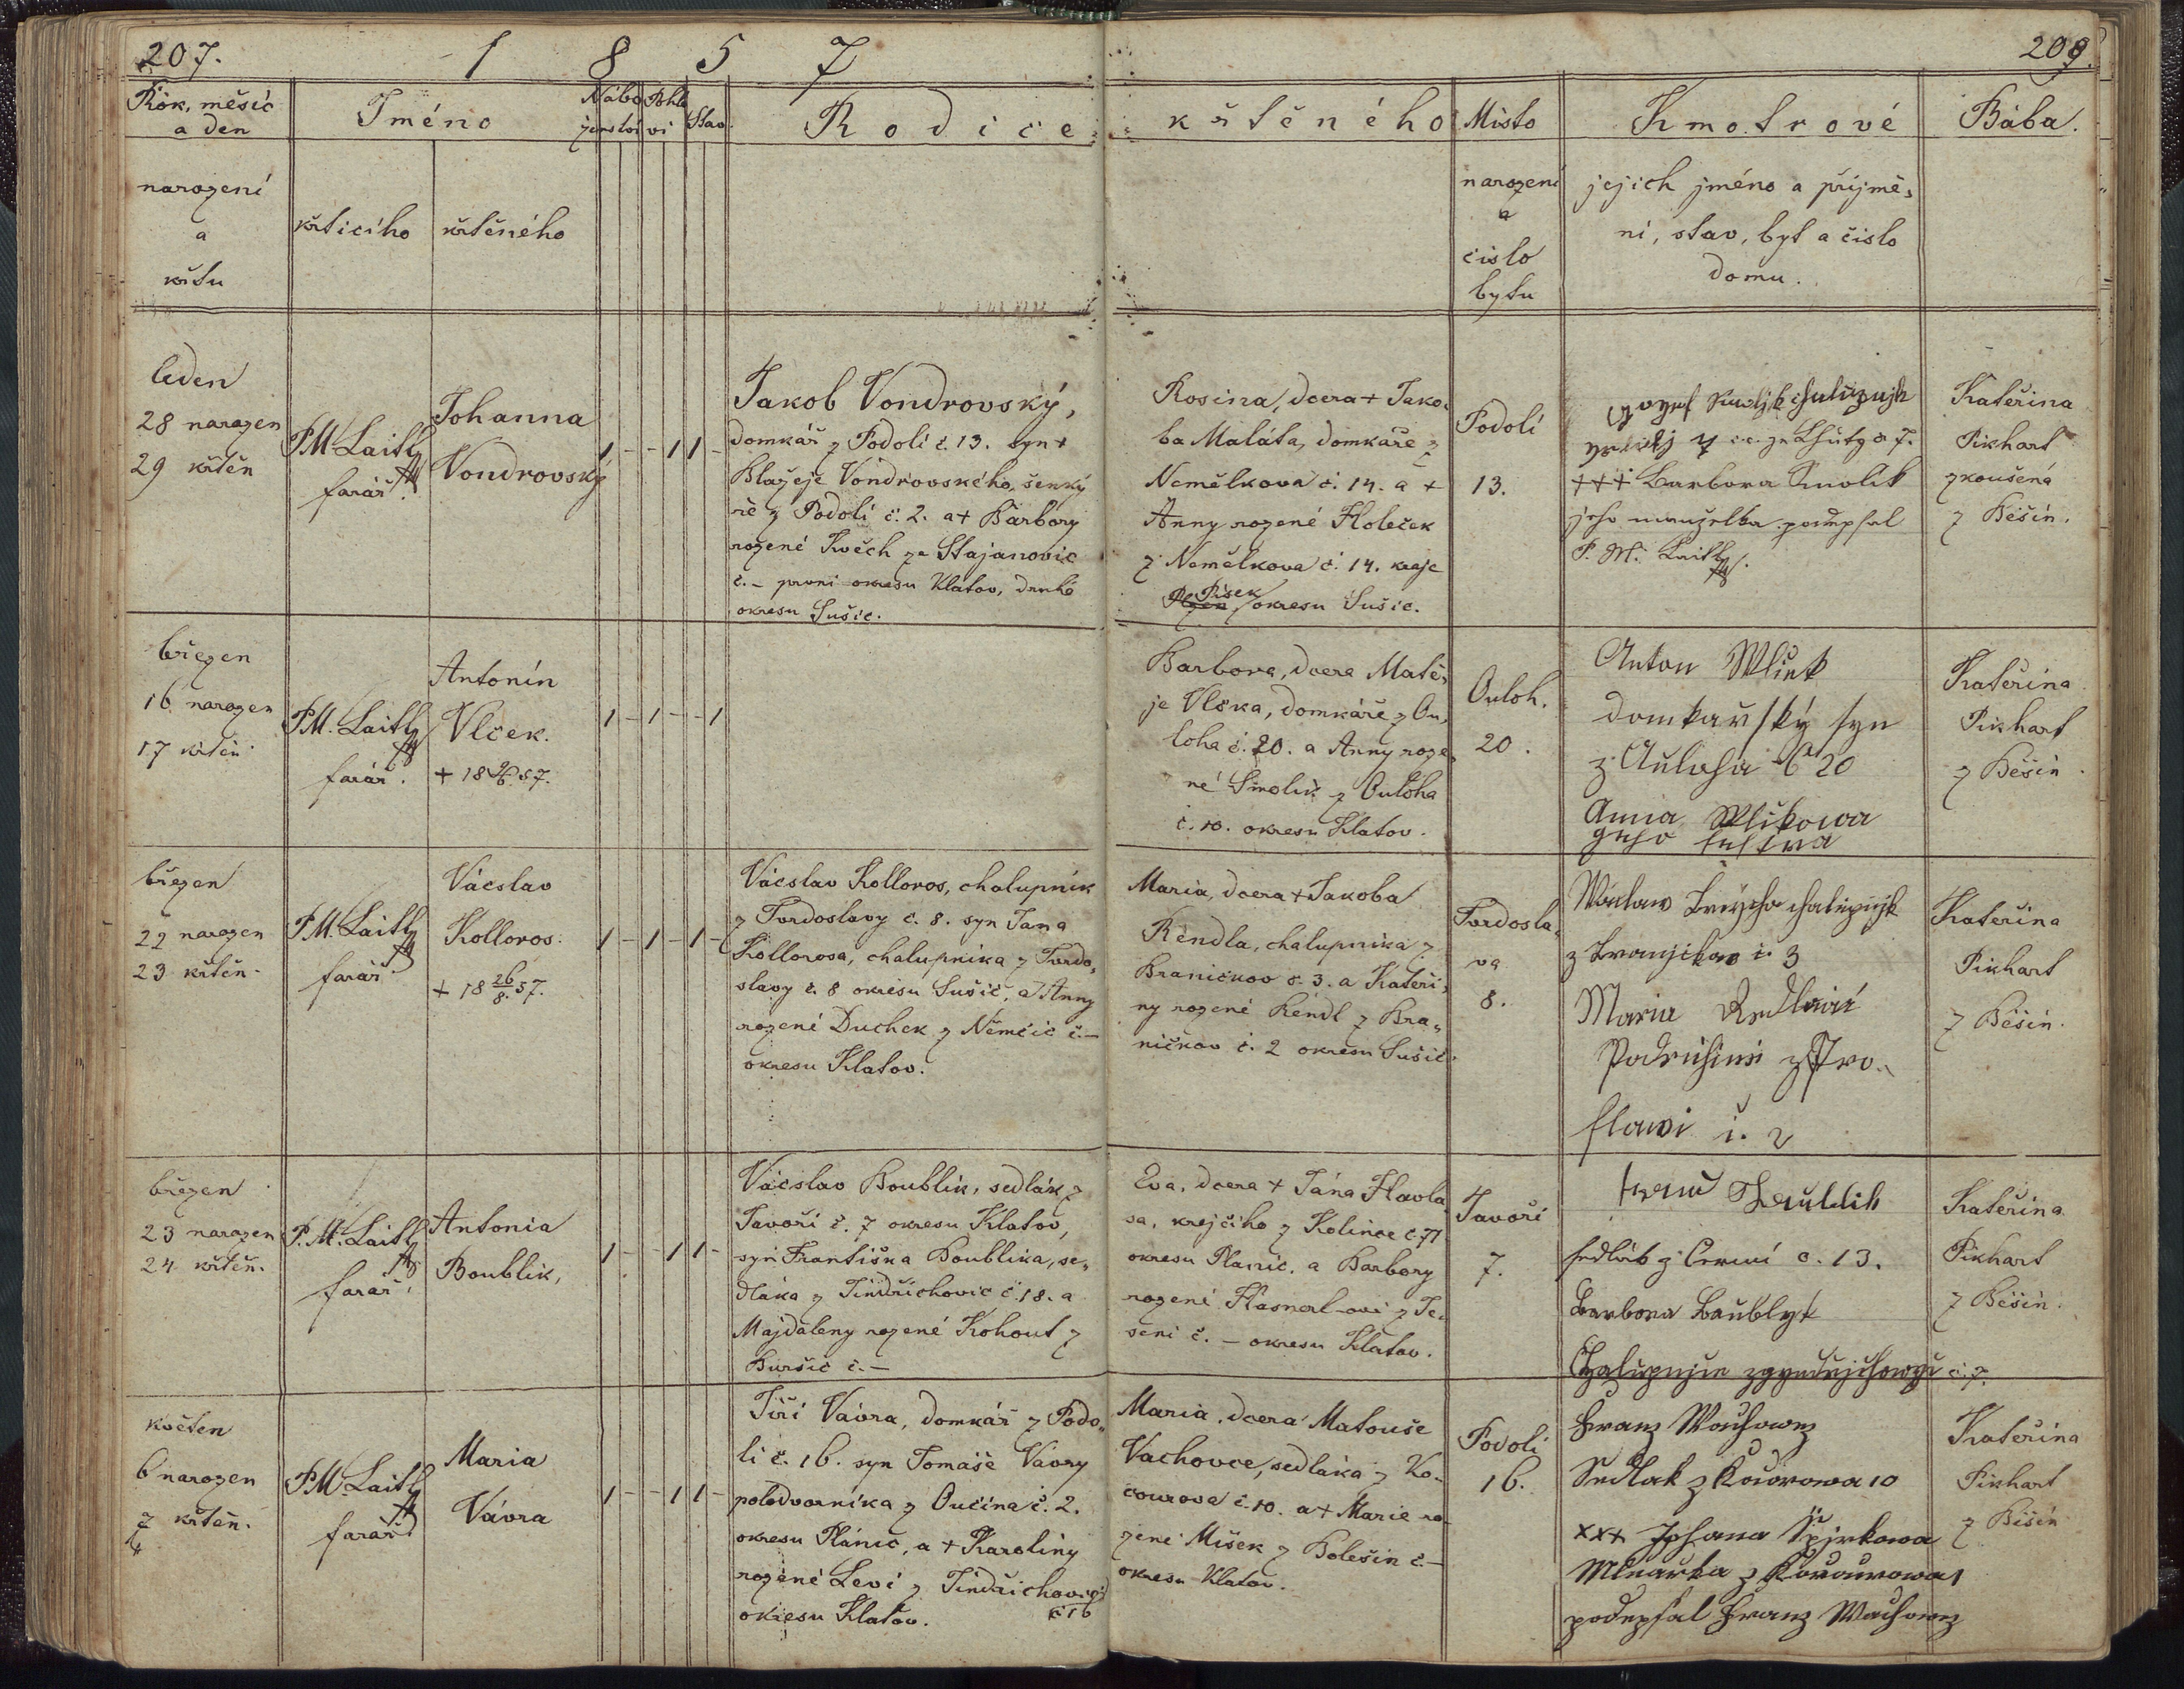 207.
1 8 5 7
209.
Rok, měsíc
a den
narození
a
křtu
Jméno
křticího
křtěného
Nábo
ženství
Pohla
ví
Stav.
Rodiče
křtěného
Místo
narození
a
číslo
bytu
Kmotrové
jejich jméno a příjmě,
ní, stav, byt a číslo
domu.
Bába.
leden
28 narozen
29 křtěn
P.M. Laitl
farář.
Johanna
Vondrovský
1 - - 1 1 -
Jakob Vondrovský,
domkář z Podolí č. 13. syn +
Blažeje Vondrovského, šenký
ře z Podolí č. 2. a + Barbory
rozené Kvěch ze Stajanovic
č. - první okresu Klatov, druhé
okresu Sušic.
Rosina, dcera + Jako,
ba Maláta, domkáře z
Nemělkova č. 14. a +
Anny rozené Holeček
z Nemělkova č. 14. kraje
Písek
Plzen okresu Sušic.
Podolí
13.
+++ Barbora Smolik
jeho manzelka podepsal
P. M. Laitl
Kateřina
Pikhart
zkoušená
z Běšin.
březen
16 narozen
17 křtěn
P.M. Laitl
farář.
Antonín
Vlček.
1 - 1 - - 1
Barbora, dcera Matě,
je Vlčka, domkáře z Ou,
loha č. 20. a Anny roze
né Smolik z Ouloha
č. 10. okresu Klatov.
Ouloh.
20.
Anton Wlček
domkařský syn
z Auloha č 20
Anna Wlčkowa
geho sestra
Kateřina
Pikhart
z Běšin.
březen
22 narozen
23 křtěn.
P.M. Laitl
farář.
Vácslav
Kolloros.
+ 18 26/8. 57.
1 - 1 - 1 -
Vácslav Kolloros, chalupník
z Tvrdoslavy č. 8. syn Jana
Kollorosa, chalupníka z Tvrdo,
slavy č. 8 okresu Sušic, a Anny
rozené Duchek z Němčic č. -
okresu Klatov.
Maria, dcera + Jakoba
Rendla, chalupníka z
Braničkov č. 3. a Kateři,
ny rozené Rendl z Bra,
ničkov č. 2 okresu Sušic.
Tvrdosla,
va
8.
z Branjckow č. 3
Maria
slawi č. 2
Kateřina
Pikhart
z Běšin.
březen
23 narozen
24 křtěn.
P.M. Laitl
farář.
Antonia
Boublik,
1 - - 1 1 -
Vácslav Boublik, sedlák z
Javoří č. 7 okresu Klatov,
syn Františka Boublika, se,
dláka z Jindřichovic č. 18. a
Majdaleny rozené Kohout z
Buršic č. -
Eva, dcera + Jána Havla
sa, krejčího z Kolince č. 71
okresu Planic. a Barbory
rozené z Te,
seni č. - okresu Klatov.
Javoří
7.
sedlák z č. 13.
Barbora Baublyk
č. 7.
Kateřina
Pikhart
z Běšin.
květen
6 narozen
7 křtěn.
P.M. Laitl
farář
Maria
Vávra
1 - - 1 1 -
Jiří Vávra, domkář z Podo,
lí č. 16. syn Tomáše Vávry
polodvorníka z Oučína č. 2.
okresu Plánic, a + Karolíny
rozené Leví z Jindřichovic
č. 16
okresu Klatov.
Maria, dcera Matouše
Vachovce, sedláka z Ko,
courova č. 10. a + Marie ro
zené Mišek z Bolešin č. -
okresu Klatov.
Podolí
16.
Franz Wachowez
Sedlak z Kocorowa 10
xxx Johana Spirkowa
Mlnarka z Kocourowa 1
podepsal Franz Wachowez
Kateřina
Pikhart
z Běšin